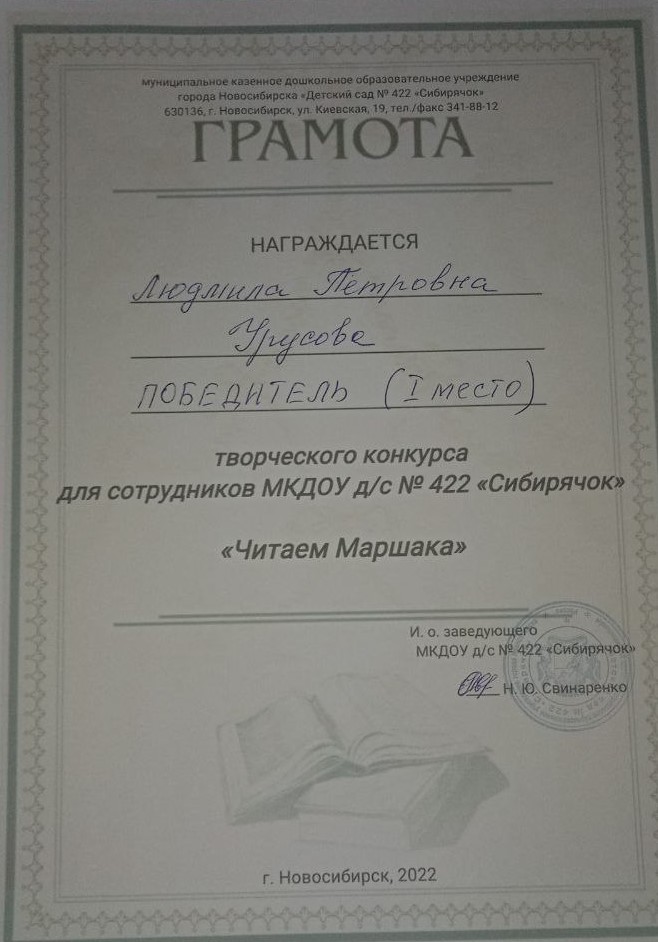 муниципальное казенное дошкольное образовательное учреждение
города Новосибирска «Детский сад № 422 «Сибирячок»
630136, г. Новосибирск, ул. Киевская, 19, тел./факс 341-88-12
ГРАМОТА
НАГРАЖДАЕТСЯ
Людмила Петровна
Урусова
ПОБЕДИТЕЛЬ (I место)
творческого конкурса
для сотрудников МКДОУ д/с № 422 «Сибирячок»
«Читаем Маршака»
И. о. заведующего
МКДОУ д/с № 422 «Сибирячок»
Н. Ю. Свинаренко
г. Новосибирск, 2022